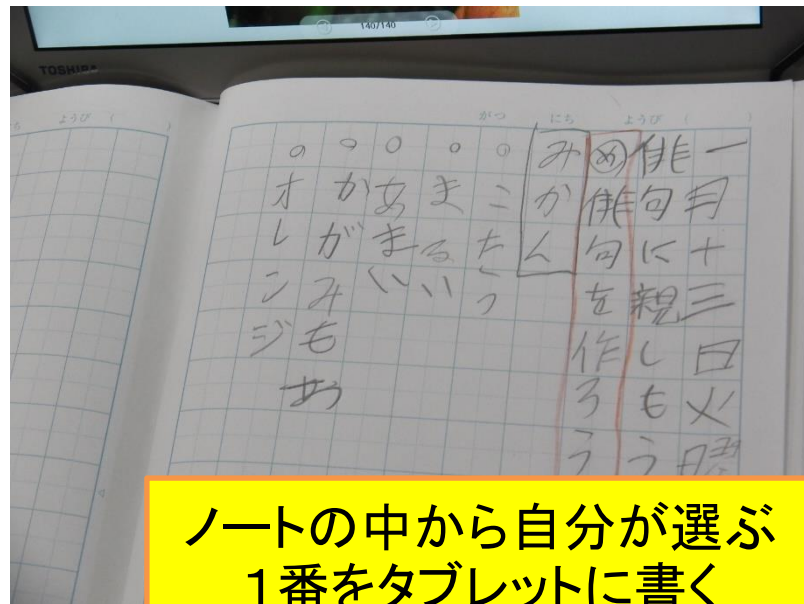 140/140
TOSHIBA
ようび ( )
がつ にち ようび ( )
一月十三日火曜
俳句に親しもう
め 俳句を作ろう
みかん
○こたつ
○まるい
○あまい
○かがみも
○オレンジ
ノートの中から自分が選ぶ
1番をタブレットに書く